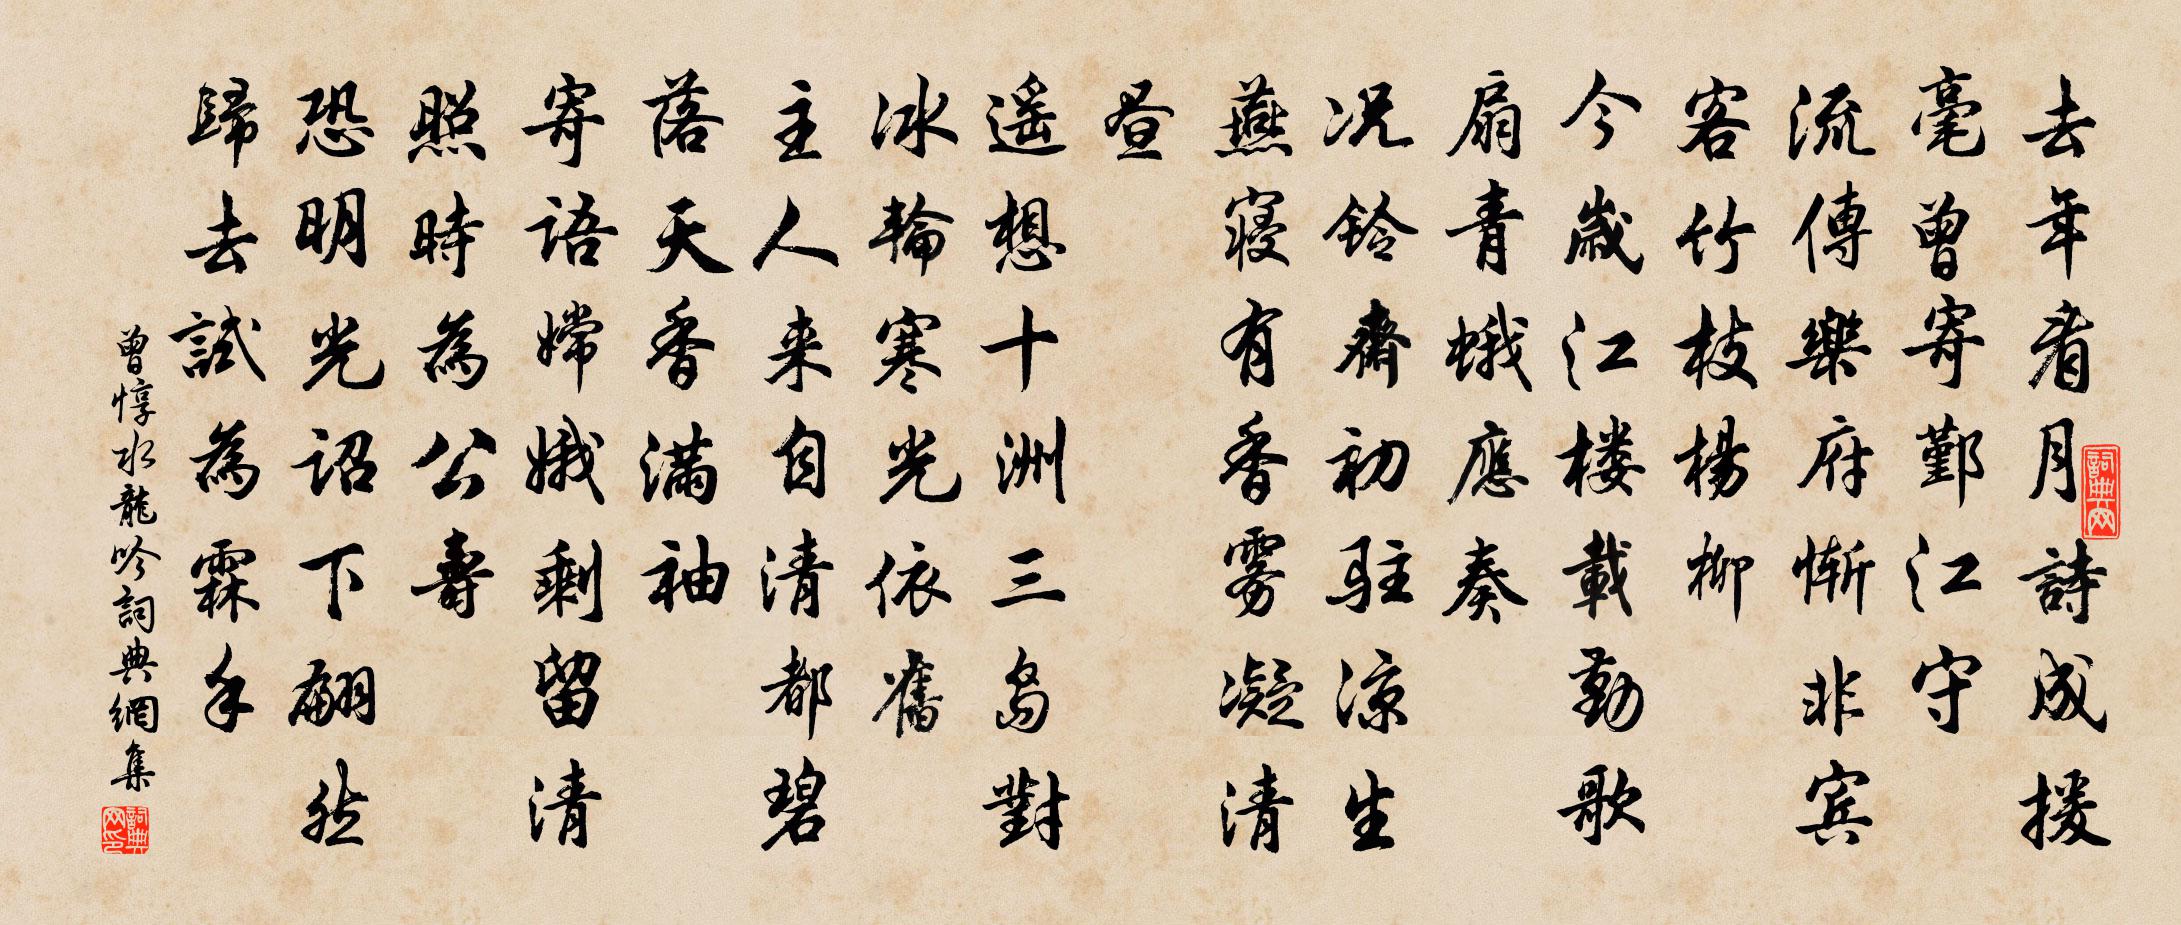 去年看月詩成援
毫曾寄鄞江守
流傳樂府慚非宾
客竹枝楊柳
今歲江楼載勤歌
扇青蛾應奏
况鈴齋初駐涼生
燕寝有香雾凝清
昼
遥想十洲三岛對
冰輪寒光依舊
主人来自清都碧
落天香滿袖
寄語嫦娥剩留清
照時為公壽
恐明光詔下翩然
歸去試為霖手
曾惇水龍吟詞典網集
詞典网
詞典网印